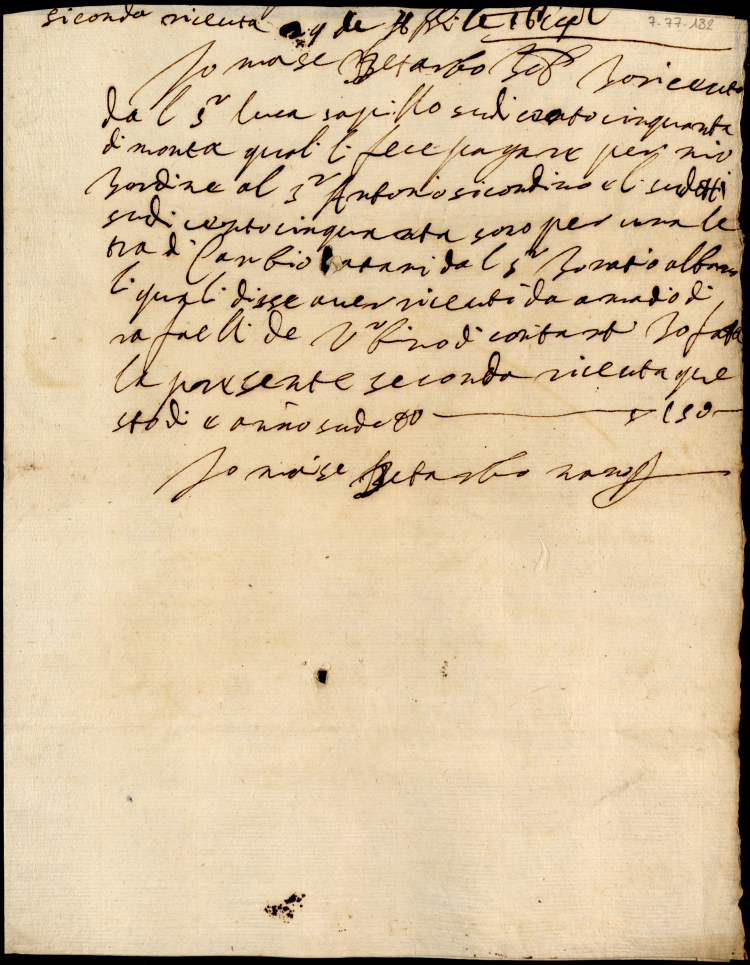 siconda riceuta 29 de Aprile
7-77-132
Jo moise Betarbo ho riceuto
da l sr luca sapillo scudi centocinquanta
di moneta quali li fece pagare per mio
hordine al sr Antonio sicondino e li sudetti
scudi centocinquanta sono per una le
tra di Canbio tatami da l sr horatio albani
li quali disse aver riceuti da amadio di
rafaelli de Urbino di contanti ho fatta
la presente seconda riceuta que
sto di e anno sudetto 150
Jo moise Betarbo mano